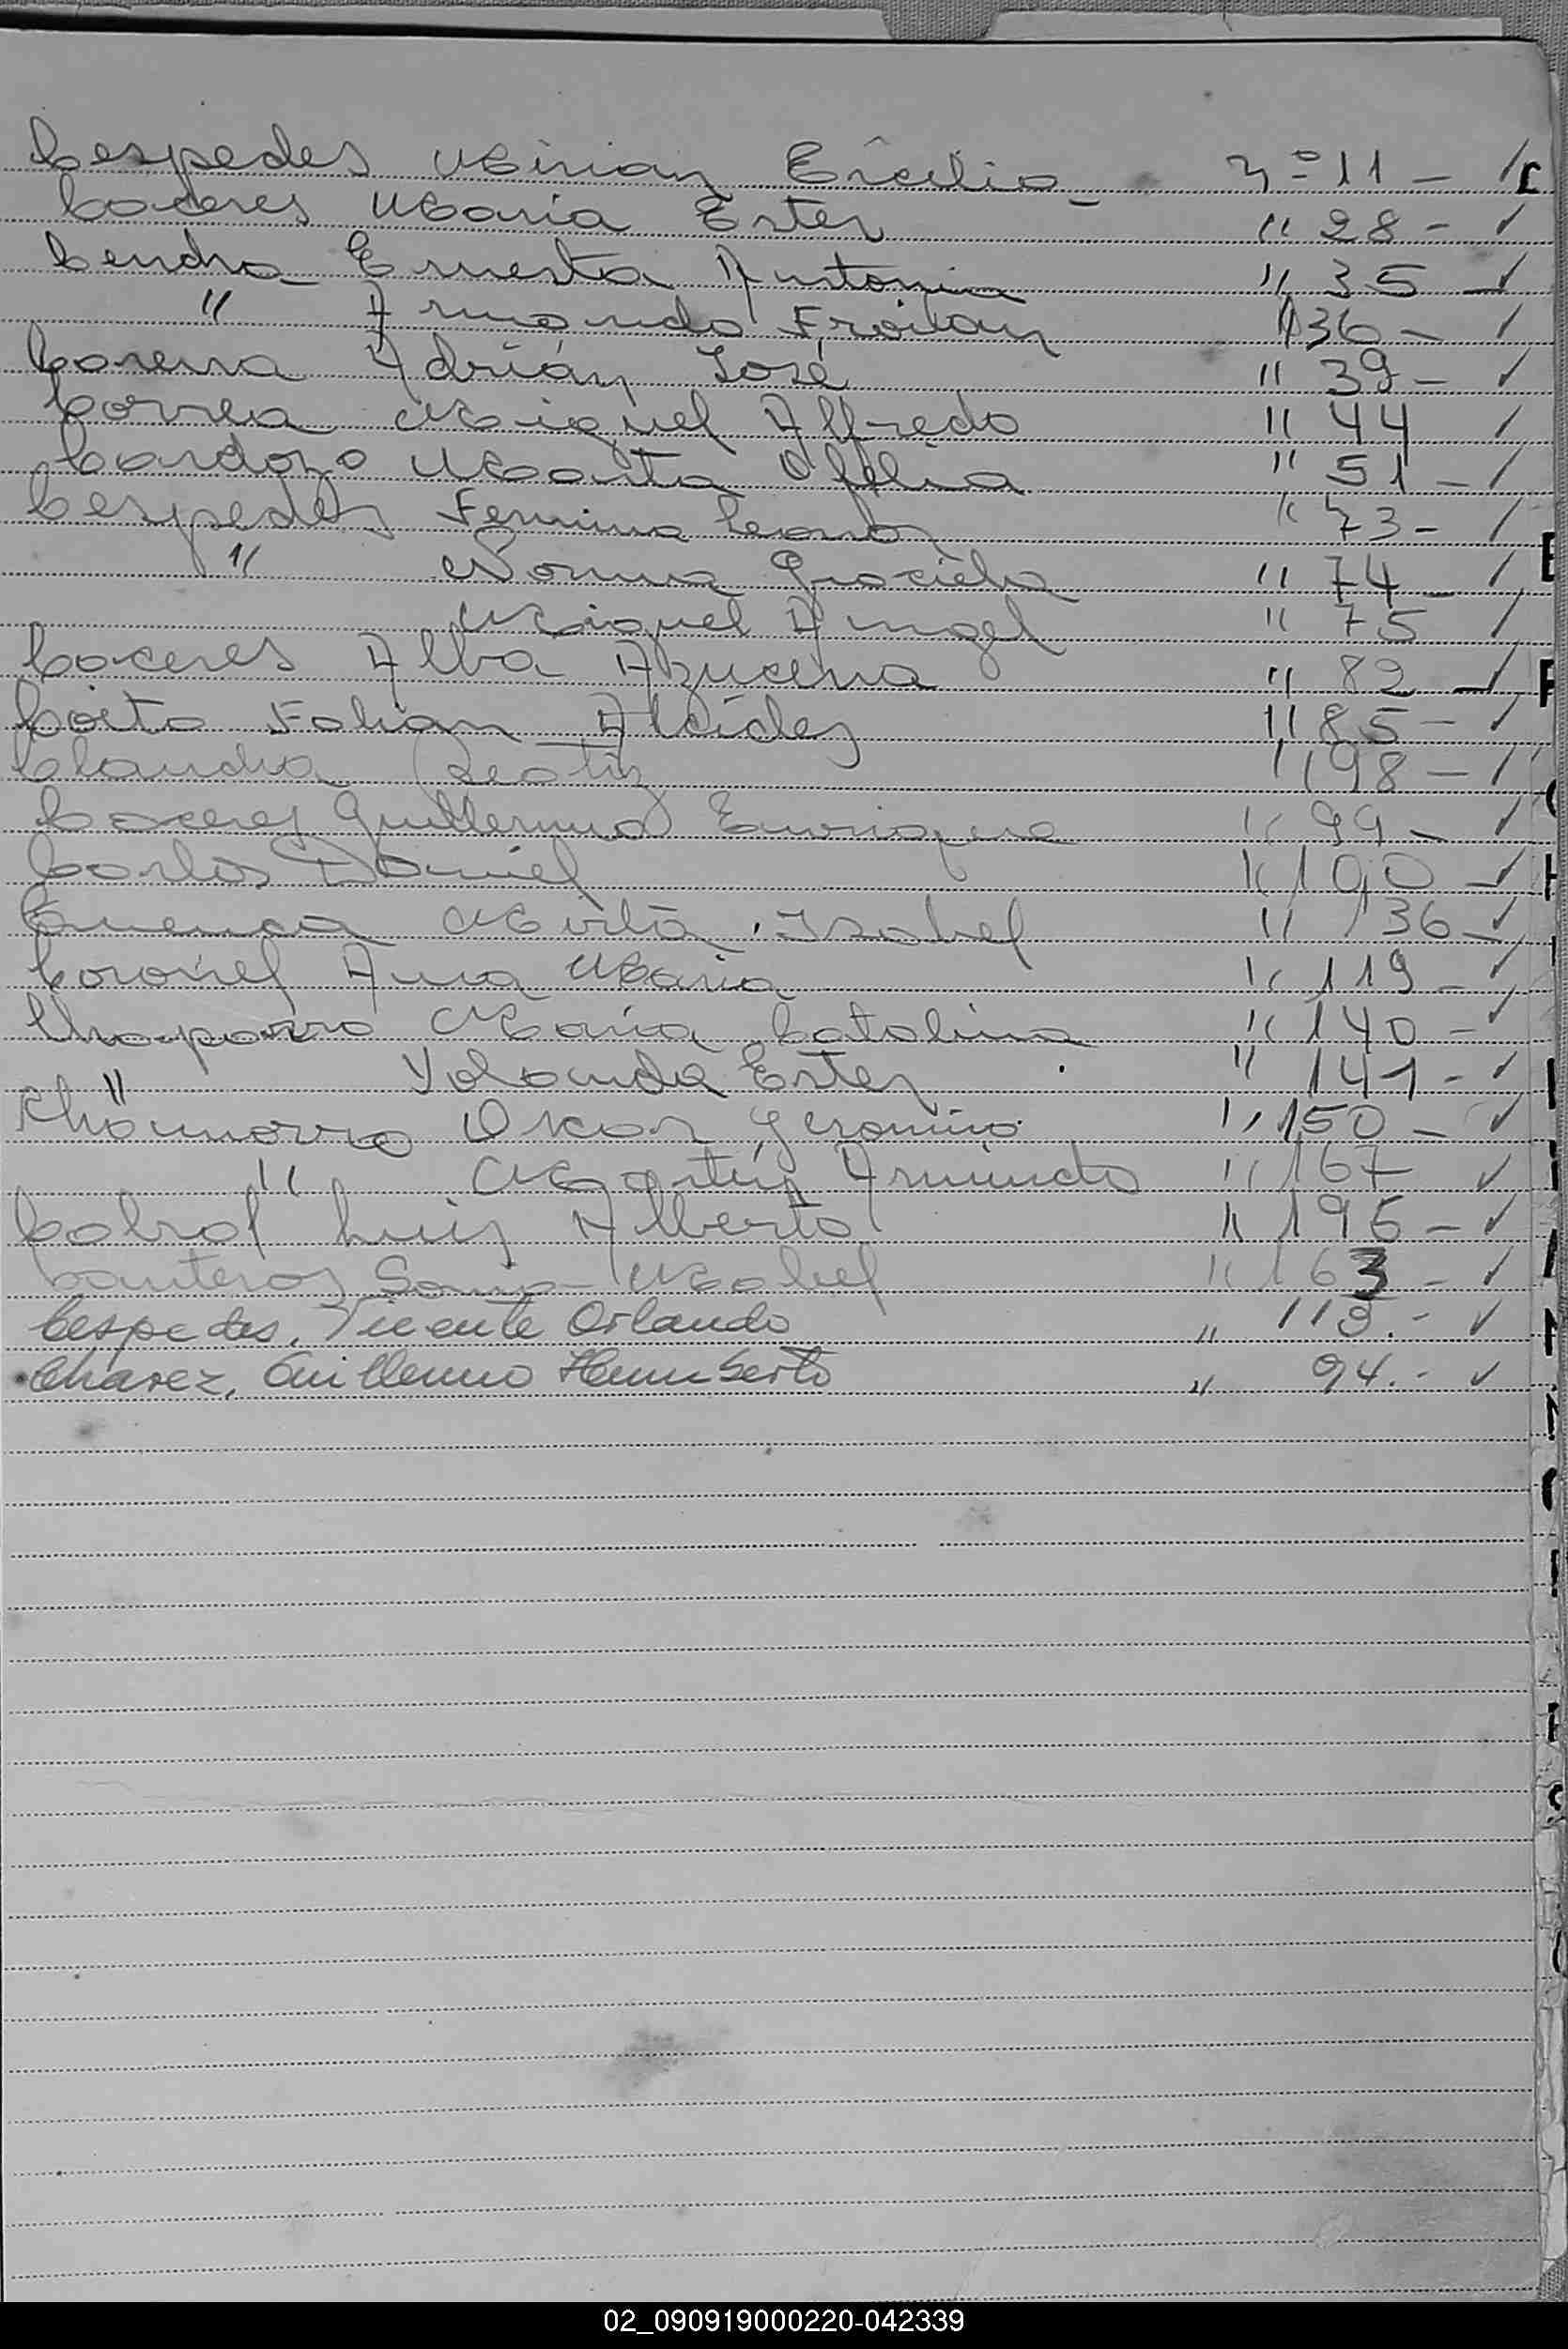 Cespedes Mirian Ercilia - nº 11 -
Caceres Maria Ester " 28 -
Cendra Ernesta Antonia " 35 -
" Armando Froilan " 36 -
Carena Adrián José " 39 -
Correa Miguel Alfredo " 44
Cardozo Marta Ofelia " 51 -
Cespedes Fermina Leonor " 73 -
" Norma Graciela " 74 -
Miguel Angel " 75
Caceres Alba Azucena " 82
Coito Fabian Alcides " 85 -
Claudia Beatiz " 98 -
Caceres Guillermo Enrique " 99 -
Carlos Daniel " 100 -
Cuenca Mirta Isabel " 136 -
Coronel Ana Maria " 119 -
Chaparro Maria Catalina " 140 -
" Yolanda Ester " 141 -
Chamorro Oscar Geronimo " 150 -
" Martín Armindo " 167
Cabral Luis Alberto " 196 -
Canteros Sonia Mabel " 163 -
Cespedes, Vicente Orlando " 113.-
Chavez, Guillermo Humberto " 94.-
C
E
F
H
02_090919000220-042339